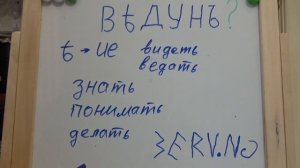 ВѢДУНЪ?
Ѣ → ИЕ видеть
ведать
знать
понимать
делать